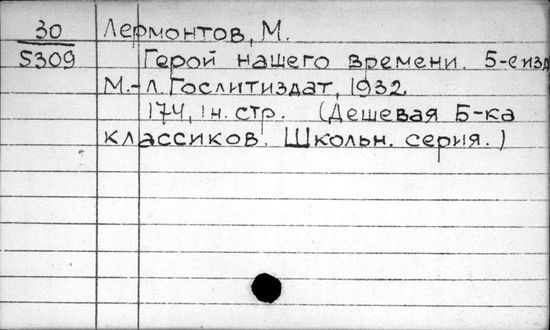 30 Лермонтов, М.
5309 Герой нашего времени. 5-е изд
М.-Л. Гослитиздат, 1932.
174, 1 н. стр. (Дешевая Б-ка
классиков. Школьн. серия.)